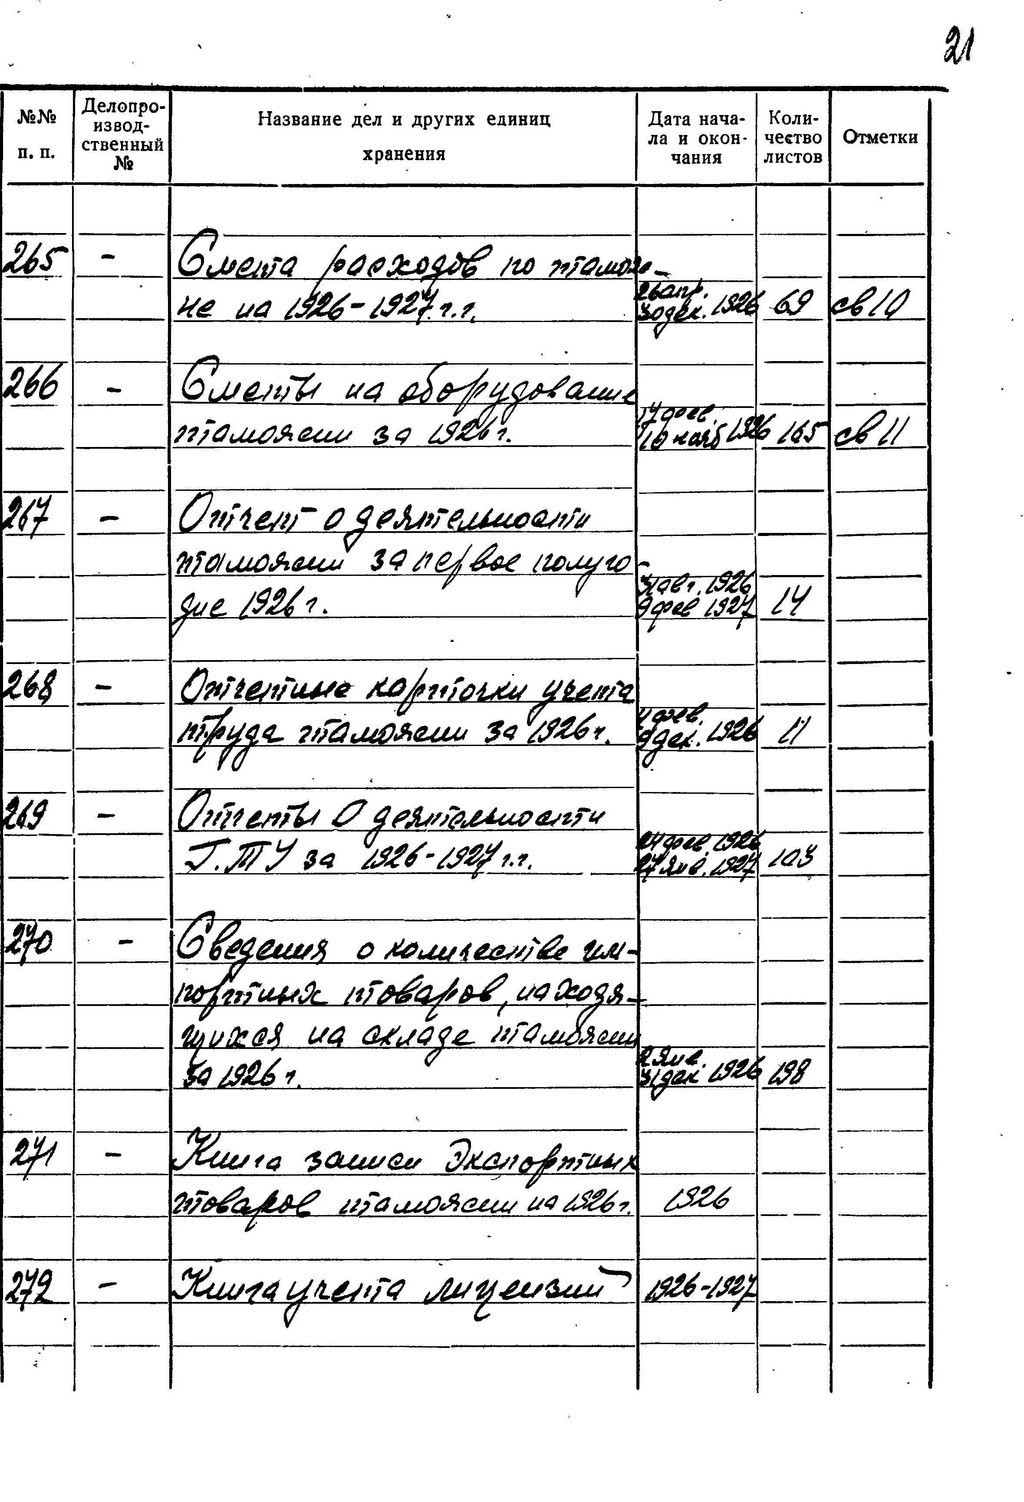 21
№№ п. п. Делопроизводственный № Название дел и других единиц хранения Дата начала и окончания Количество листов Отметки
265 – Смета расходов по тамож–
не на 1926–1927 г.г. 26 апр. 30 дек. 1926 69 св 10
266 – Сметы на оборудование
таможни за 1926 г. 17 фев. 10 нояб 1926 165 св 11
267 – Отчет о деятельности
таможни за первое полуго–
дие 1926 г. 31 авг. 1926 9 фев 1927 14
268 – Отчетные карточки учета
труда таможни за 1926 г. 4 фев. 9 дек. 1926 11
269 – Отчеты о деятельности
Г.Т.У за 1926–1927 г.г. 24 фев. 1926 27 янв. 1927 103
270 – Сведения о количестве им–
портных товаров, находя–
щихся на складе таможни
за 1926 г. 2 янв. 31 дек 1926 198
271 – Книга записи Экспортных
товаров таможни на 1926 г. 1926
272 – Книга учета лицензий 1926–1927